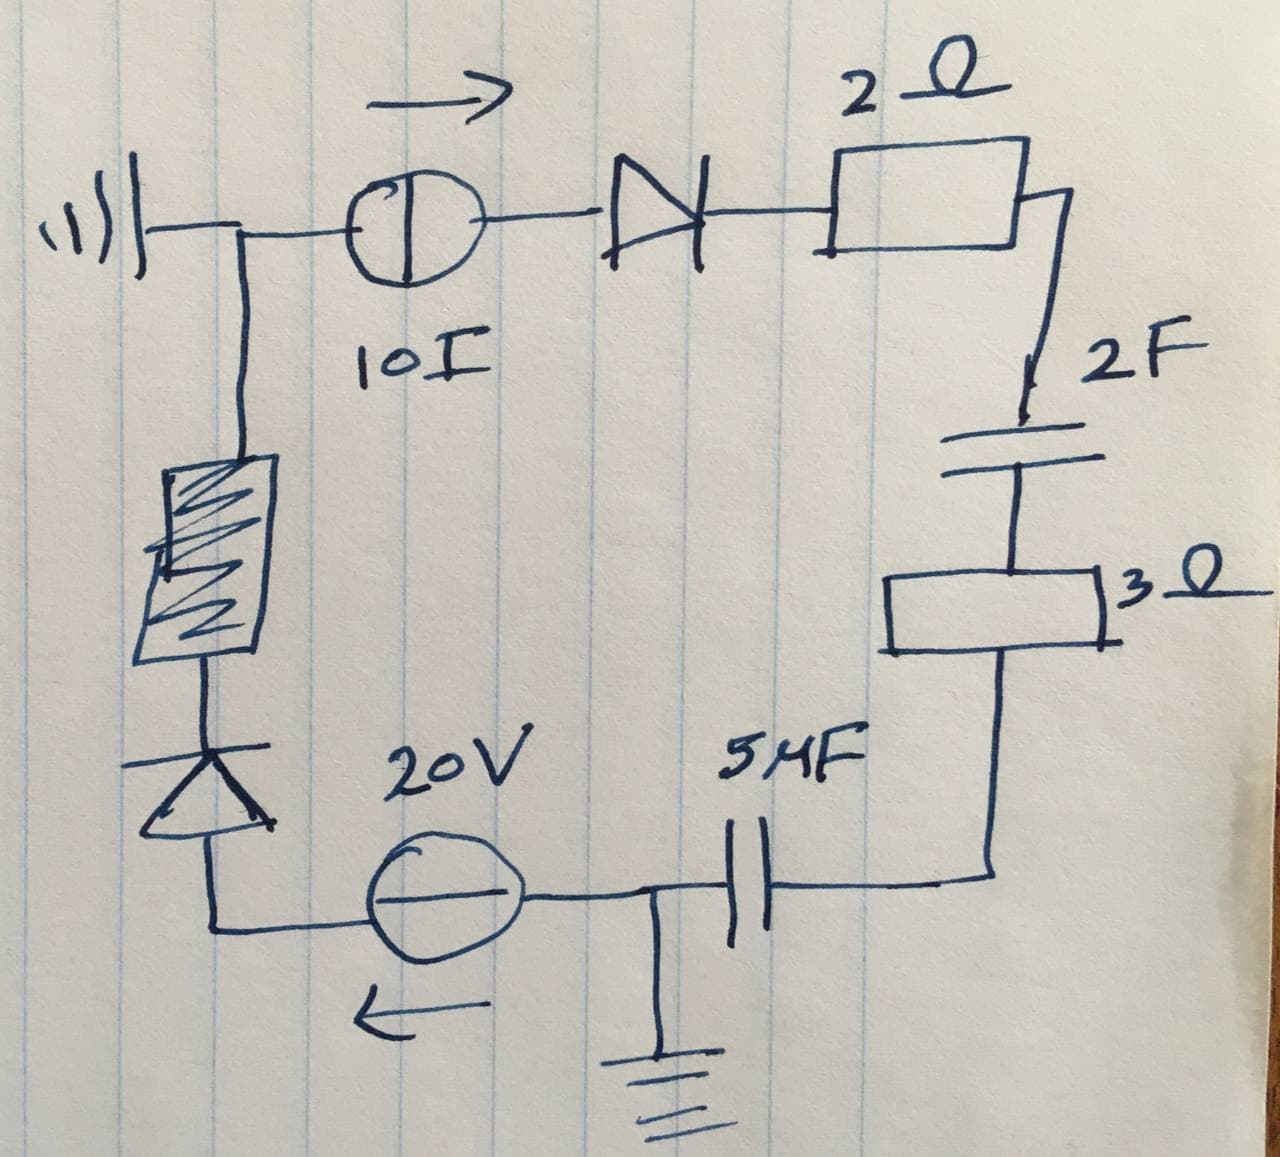 2 Ω
10I
2F
3 Ω
20V
5μF